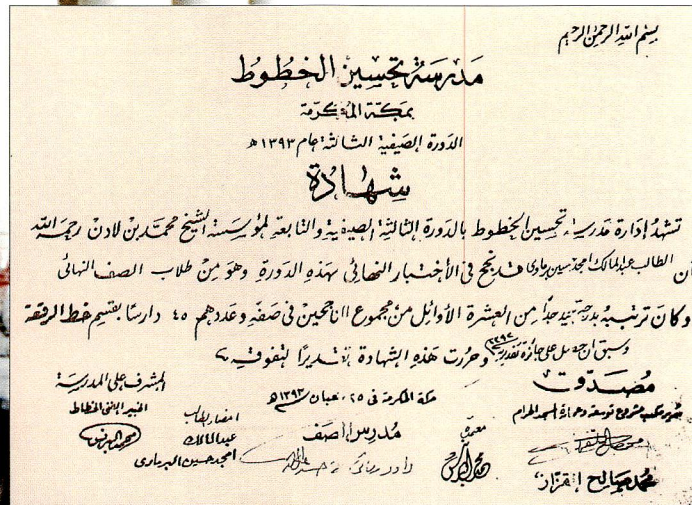 بسم الله الرحمن الرحيم
مدرسة تحسين الخطوط
بمكة المكرمة
الدورة الصيفية الثالثة عام ١٣٩٣ هـ
شهادة
تشهد إدارة مدرسة تحسين الخطوط بالدورة الثالثة الصيفية والتابعة لمؤسسة الشيخ محمد بن لادن رحمه الله
أن الطالب عبدالملك امجد حسين برياري قد نجح في الأختبار النهائي بهذه الدورة وهو من طلاب الصف النهائي
وكان ترتيبه بدرجة جيد جدا من العشرة الأوائل من مجموع الناجحين في صفه وعددهم ٤٥ دارسا بقسم خط الرقعة
وسبق ان حصل على جائزة تقديرية ١٣٩٢ وحررت هذه الشهادة تقديرا لتفوقه
مكة المكرمة في ٢٥ شعبان ١٣٩٣ هـ
مصدق
مدير مكتب مشروع توسعة وعمارة المسجد الحرام
محمد صالح القزاز
معمده
مدرس الصف
امضاء الطالب
عبدالمالك
امجد حسين البرياري
المشرف على المدرسة
الخبير الفني الخطاط